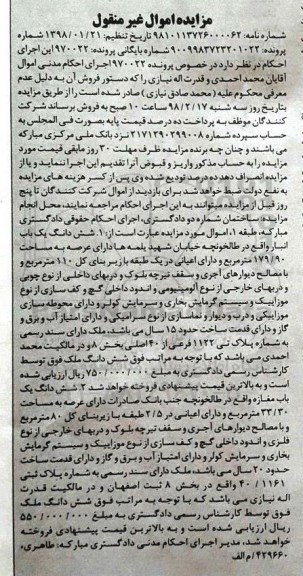 مزایده اموال غیر منقول
شماره نامه: ۹۸۱۰۱۱۳۷۲۶۰۰۰۰۶۲ تاریخ تنظیم: ۱۳۹۸/۰۱/۲۱ شماره
پرونده: ۹۰۰۹۹۸۳۷۲۲۲۰۱۰۲۲ شماره بایگانی پرونده: ۹۷۰۰۲۲ این اجرای
احکام در نظر دارد در خصوص پرونده ۹۷۰۰۲۲ اجرای احکام مدنی اموال
آقایان محمد احمدی و قدرت اله نیازی را که دستور فروش آن به دلیل عدم
معرفی محکوم علیه (محمد صادق نیازی) صادر شده است را از طریق مزایده
بتاریخ روز سه شنبه ۹۸/۲/۱۷ ساعت ۱۰ صبح به فروش برساند شرکت
کنندگان موظف به پرداخت ده درصد قیمت پایه بصورت فی المجلس به
حساب سپرده شماره ۲۱۷۱۲۹۰۲۹۹۰۰۸ نزد بانک ملی مرکزی مبارکه می
باشند و چنانچه برنده مزایده ظرف مهلت ۳۰ روز مابقی قیمت مورد
مزایده را به حساب مذکور واریز و قبض آنرا تقدیم این اجرا ننماید و یا از
مزایده انصراف دهد ده درصد تودیع شده وی پس از کسر هزینه های مزایده
به نفع دولت ضبط خواهد شد برای بازدید از اموال شرکت کنندگان تا پنج
روز قبل از مزایده می توانند به این اجرا مراجعه نمایند، محل انجام
مزایده: ساختمان شماره دو دادگستری، اجرای احکام حقوقی دادگستری
مبارکه، طبقه ۱، اموال مورد مزایده عبارت است از: ۱. شش دانگ یک باب
انبار واقع در طالخونچه خیابان شهید پلمه ها دارای عرصه به مساحت
۱۷۹/۹۰ مترمربع و دارای اعیانی در یک طبقه با زیر بنای کل ۱۱۰ مترمربع و
با مصالح دیوارهای آجری و سقف تیرچه بلوک و دربهای داخلی از نوع چوبی
و دربهای خارجی از نوع آلومینیومی و اندود داخلی گچ و کف سازی از نوع
موزاییک و سیستم گرمایش بخاری و سرمایش کولر و دارای محوطه سازی
موزاییکی و درب و دیوار و نماسازی از نوع سرامیکی و دارای امتیاز آب و برق و
گاز و دارای قدمت ساخت حدود ۱۵ سال می باشد، ملک دارای سند رسمی
به شماره پلاک ثبتی ۱۱۲۲ فرعی از ۴۰ اصلی بخش ۸ و در مالکیت محمد
احمدی می باشد که با توجه به مراتب فوق شش دانگ ملک فوق توسط
کارشناس رسمی دادگستری به مبلغ ۷۵۰/۰۰۰/۰۰۰ ریال ارزیابی شده
است و به بالاترین قیمت پیشنهادی فروخته خواهد شد ۲. شش دانگ یک
باب مغازه واقع در طالخونچه جنب بانک صادرات دارای عرصه به مساحت
۳۳/۳۰ مترمربع و دارای اعیانی در ۲/۵ طبقه با زیربنای کل ۸۰ مترمربع
و با مصالح دیوارهای آجری و سقف تیرچه بلوک و دربهای خارجی از نوع
فلزی و اندود داخلی گچ و کف سازی از نوع موزاییک و سیستم گرمایش
بخاری و سرمایش کولر و دارای امتیاز آب و برق و گاز و دارای قدمت ساخت
حدود ۲۰ سال می باشد، ملک دارای سند رسمی به شماره پلاک ثبتی
۴۰/۱۱۶۱ واقع در بخش ۸ ثبت اصفهان و در مالکیت قدرت
اله نیازی می باشد که با توجه به مراتب فوق شش دانگ ملک
فوق توسط کارشناس رسمی دادگستری به مبلغ ۵۵۰/۰۰۰/۰۰۰
ریال ارزیابی شده است و به بالاترین قیمت پیشنهادی فروخته
خواهد شد، مدیر اجرای احکام مدنی دادگستری مبارکه: طاهری،
۴۲۹۶۶۰/م الف